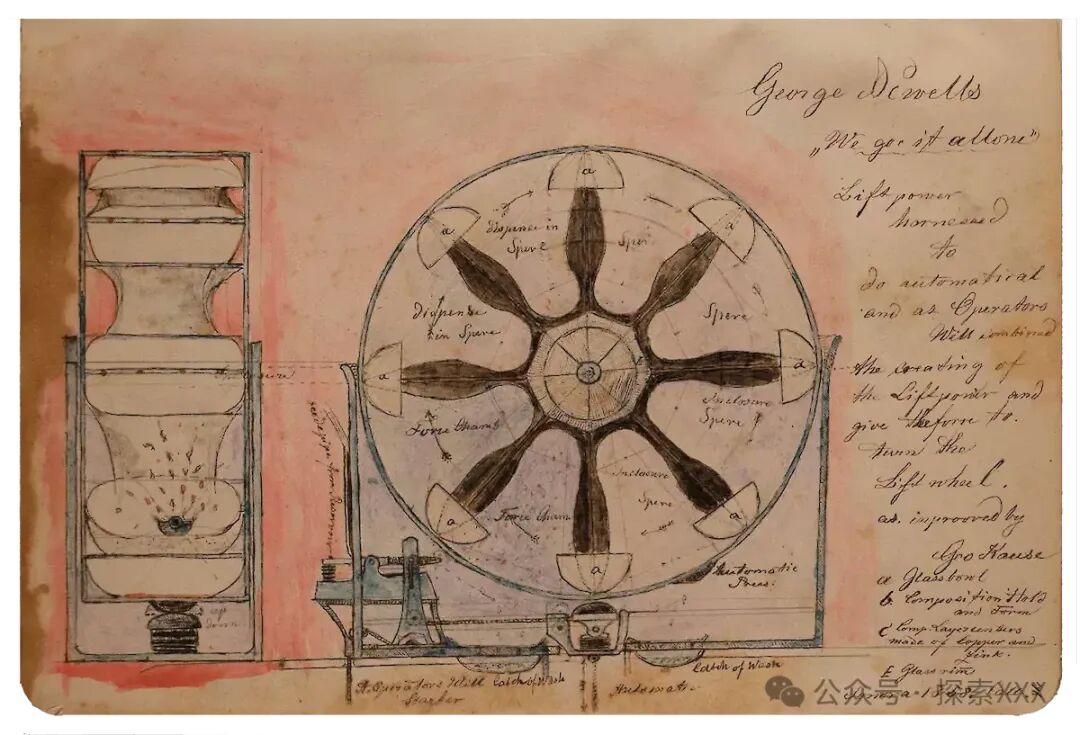 George Newells
„We goe it allone"
Lift power
harnessed
to
do automatical
and as Operators
Will combined
the creating of
the Lift power and
give the force to
turn the
Lift wheel.
as improoved by
Geo Kause
a Glassbowl
b. Composition Hold
and Form
made of Copper and
Zink.
E Glass rim
a
a
a
a
a
a
a
a
dispense in
Spere
Spere
dispense
in Spere
Spere
Inclosure
Spere
Force Cham
Inclosure
Spere
Force Cham
Automatic
Pres.
up
down
Operators Will
Catch of Wash
Automatic
Catch of Wash
公众号 探索XXX